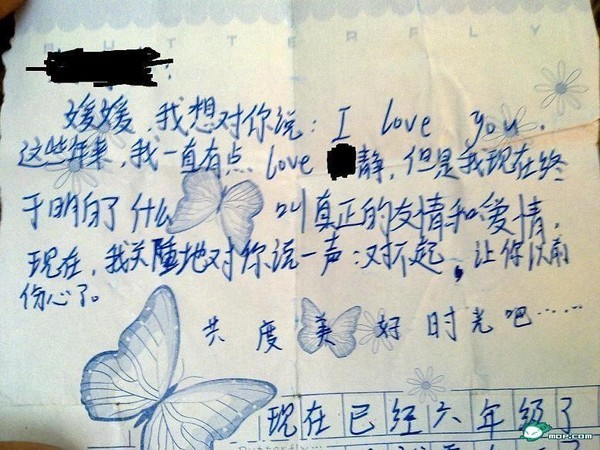 BUTTERFLY
媛媛,我想对你说:I love you.
这些年来,我一直有点 love 静,但是我现在终
于明白了什么叫真正的友情和爱情。
现在,我关
地对你说一声:对不起,让你以前
伤心了。
共度美好时光吧……
现在已经六年级了
Butterfly...
MOP.com